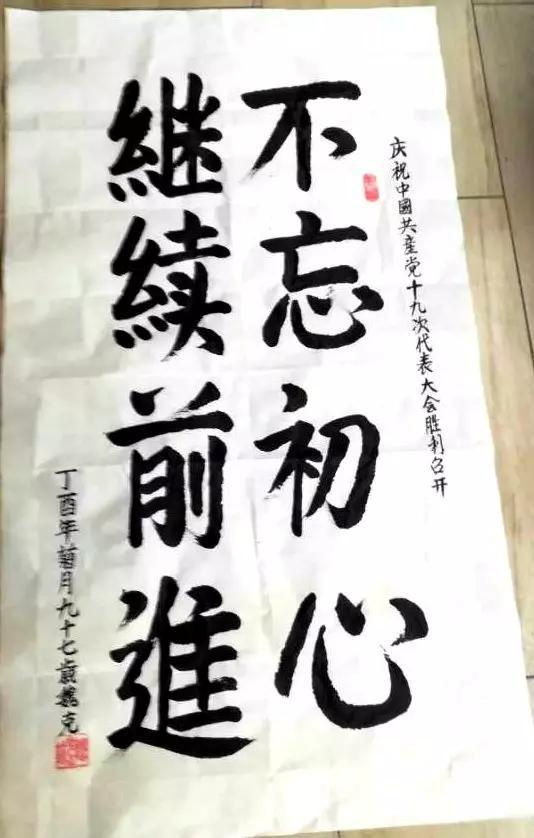 庆祝中國共產党十九次代表大会胜利召开
不忘初心
継续前進
丁酉年菊月九十七歲魏克